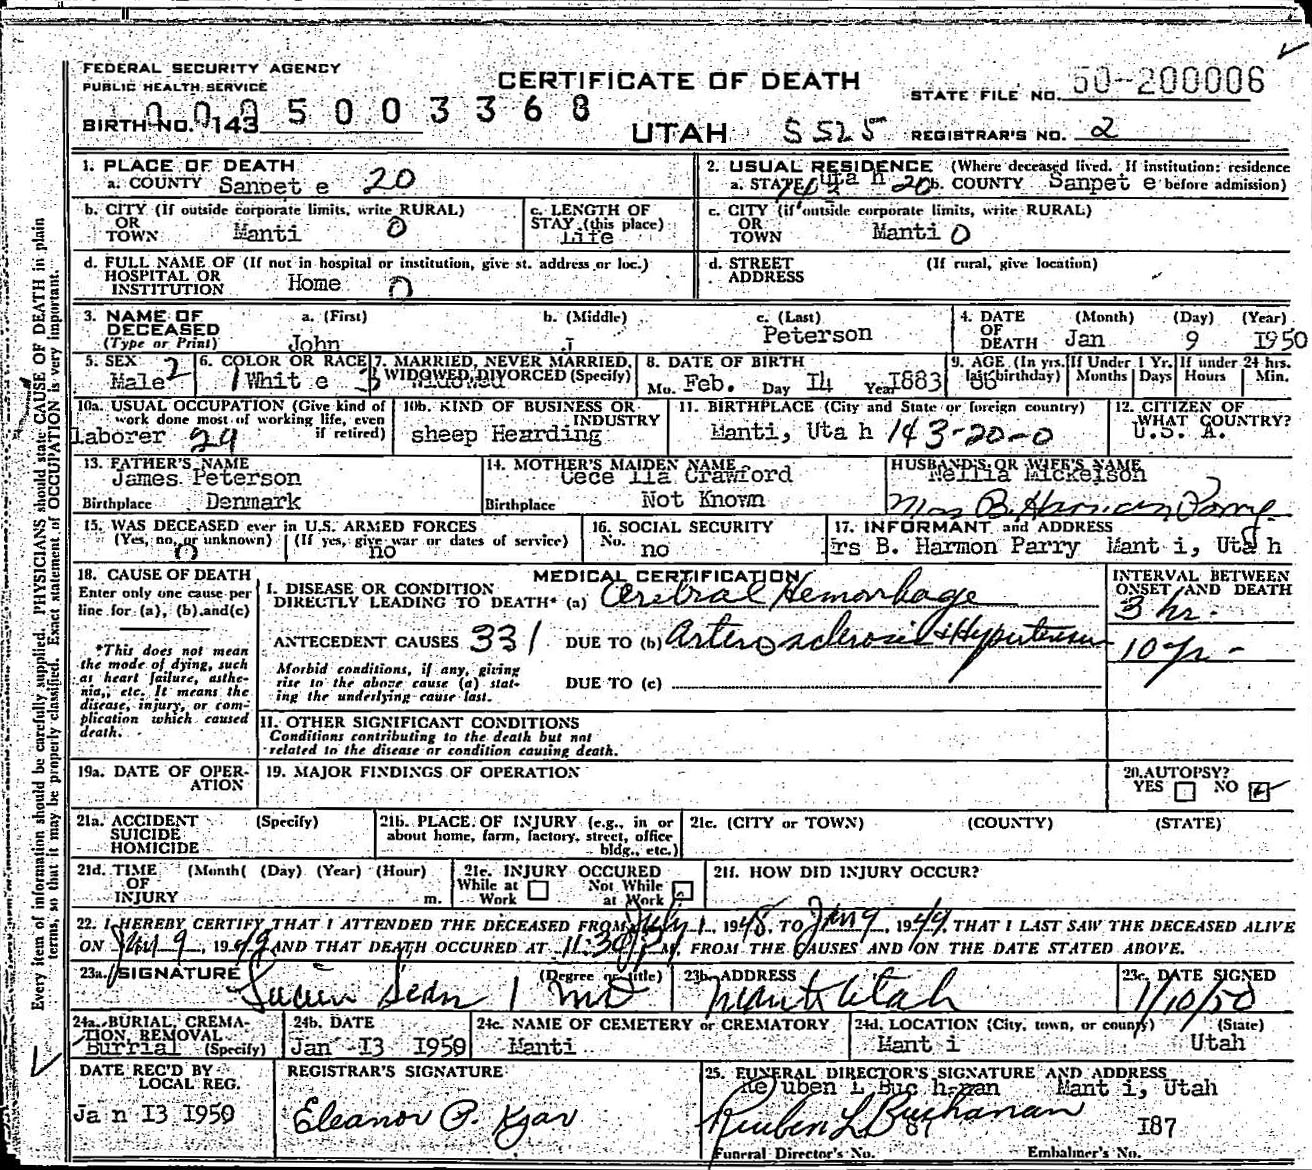 FEDERAL SECURITY AGENCY
PUBLIC HEALTH SERVICE
CERTIFICATE OF DEATH
STATE FILE NO. 50-200006
BIRTH NO. 143
0005003368
UTAH
REGISTRAR'S NO. 2
1. PLACE OF DEATH
a. COUNTY Sanpete 20
2. USUAL RESIDENCE (Where deceased lived. If institution: residence before admission)
a. STATE Utah 20 b. COUNTY Sanpete
b. CITY (If outside corporate limits, write RURAL) OR TOWN Manti 0
c. LENGTH OF STAY (this place) Life
c. CITY (if outside corporate limits, write RURAL) OR TOWN Manti 0
d. FULL NAME OF (If not in hospital or institution, give st. address or loc.) HOSPITAL OR INSTITUTION Home 0
d. STREET ADDRESS (If rural, give location)
3. NAME OF DECEASED (Type or Print)
a. (First) John
b. (Middle) J
c. (Last) Peterson
4. DATE OF DEATH (Month) (Day) (Year) Jan 9 1950
5. SEX Male 2
6. COLOR OR RACE 1 White
7. MARRIED, NEVER MARRIED, WIDOWED, DIVORCED (Specify) 3 Widowed
8. DATE OF BIRTH Mo. Feb. Day 14 Year 1883
9. AGE (In yrs. last birthday) 66
If Under 1 Yr. Months Days
If under 24 hrs. Hours Min.
10a. USUAL OCCUPATION (Give kind of work done most of working life, even if retired) laborer 29
10b. KIND OF BUSINESS OR INDUSTRY sheep Hearding
11. BIRTHPLACE (City and State or foreign country) Manti, Utah 143-20-0
12. CITIZEN OF WHAT COUNTRY? U.S. A.
13. FATHER'S NAME James Peterson
Birthplace Denmark
14. MOTHER'S MAIDEN NAME Cece lla Crawford
Birthplace Not Known
HUSBAND'S OR WIFE'S NAME Nellia Mickelson
Mrs B. Harmon Parry
15. WAS DECEASED ever in U.S. ARMED FORCES
(Yes, no, or unknown) (If yes, give war or dates of service)
0 no
16. SOCIAL SECURITY No. no
17. INFORMANT and ADDRESS
rs B. Harmon Parry Manti, Utah
18. CAUSE OF DEATH
Enter only one cause per line for (a), (b), and (c)
*This does not mean the mode of dying, such as heart failure, asthenia, etc. It means the disease, injury, or complication which caused death.
MEDICAL CERTIFICATION
INTERVAL BETWEEN ONSET AND DEATH
I. DISEASE OR CONDITION DIRECTLY LEADING TO DEATH* (a) Cerebral Hemorrhage 3 hr.
ANTECEDENT CAUSES 331 DUE TO (b) Arterosclerosis & Hypertension 10 yr -
Morbid conditions, if any, giving rise to the above cause (a) stating the underlying cause last.
DUE TO (c)
II. OTHER SIGNIFICANT CONDITIONS
Conditions contributing to the death but not related to the disease or condition causing death.
19a. DATE OF OPERATION
19. MAJOR FINDINGS OF OPERATION
20. AUTOPSY? YES NO
21a. ACCIDENT SUICIDE HOMICIDE (Specify)
21b. PLACE OF INJURY (e.g., in or about home, farm, factory, street, office bldg., etc.)
21c. (CITY or TOWN) (COUNTY) (STATE)
21d. TIME OF INJURY (Month( (Day) (Year) (Hour) m.
21e. INJURY OCCURED While at Work Not While at Work
21f. HOW DID INJURY OCCUR?
22. I HEREBY CERTIFY THAT I ATTENDED THE DECEASED FROM July 1, 1948, TO Jan 9, 1949, THAT I LAST SAW THE DECEASED ALIVE
ON Jan 9, 1949, AND THAT DEATH OCCURED AT 11:30 P.M. FROM THE CAUSES AND ON THE DATE STATED ABOVE.
23a. SIGNATURE (Degree or title) 1 MD
23b. ADDRESS Manti Utah
23c. DATE SIGNED 1/10/50
24a. BURIAL, CREMATION, REMOVAL (Specify) Burrial
24b. DATE Jan 13 1950
24c. NAME OF CEMETERY or CREMATORY Manti
24d. LOCATION (City, town, or county) (State) Manti Utah
DATE REC'D BY LOCAL REG. Jan 13 1950
REGISTRAR'S SIGNATURE Eleanor P. Kjar
25. FUNERAL DIRECTOR'S SIGNATURE AND ADDRESS
Reuben L Buchanan Manti, Utah
Reuben L Buchanan
87 187
Funeral Director's No. Embalmer's No.
Every item of information should be carefully supplied. PHYSICIANS should state CAUSE OF DEATH in plain
terms, so that it may be properly classified. Exact statement of OCCUPATION is very important.